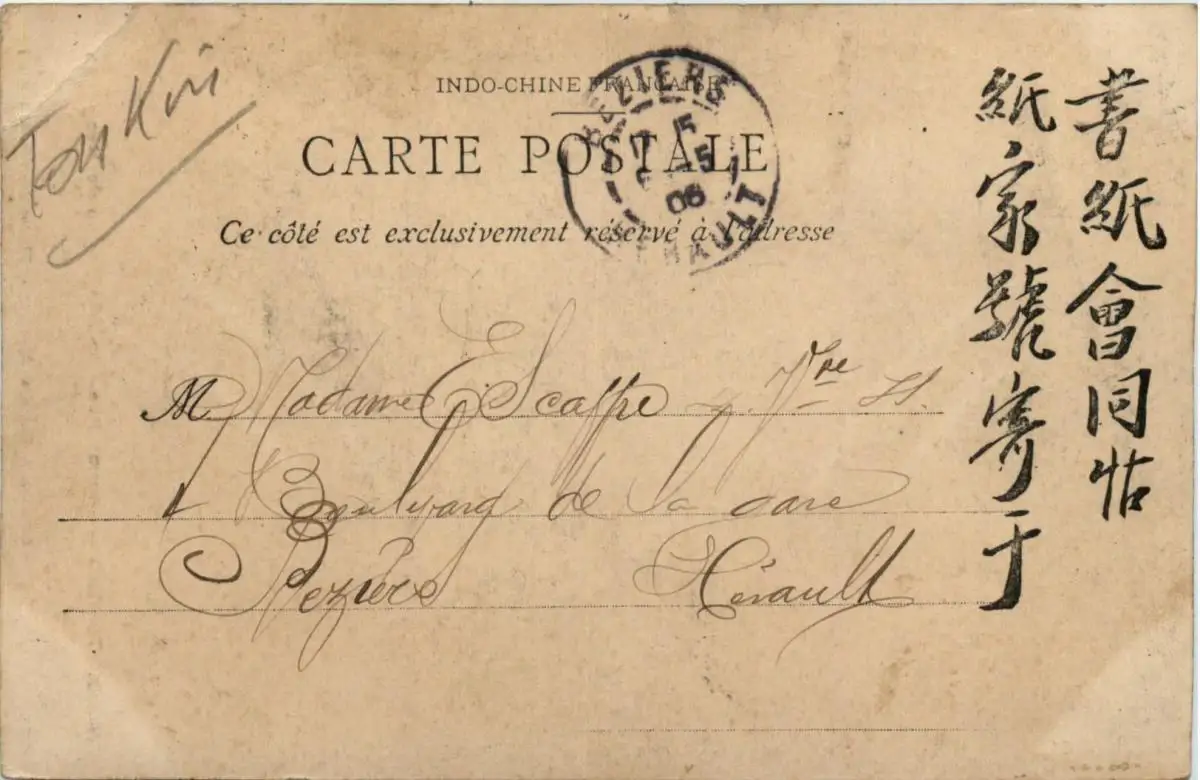 Ton Kin
INDO-CHINE FRANÇAISE
CARTE POSTALE
Ce côté est exclusivement réservé à l'adresse
BEZIERS
15
5
06
HERAULT
M Madame E Scaffre
Boulevard de la gare
Béziers Hérault
書紙會同怗
紙家號寄于